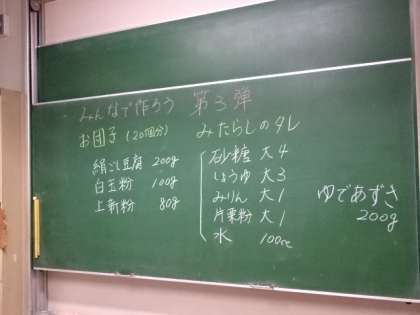 みんなで作ろう 第3弾
お団子 (20個分)
絹ごし豆腐 200g
白玉粉 100g
上新粉 80g
みたらしのタレ
砂糖 大4
しょうゆ 大3
みりん 大1
片栗粉 大1
水 100cc
ゆであずき
200g